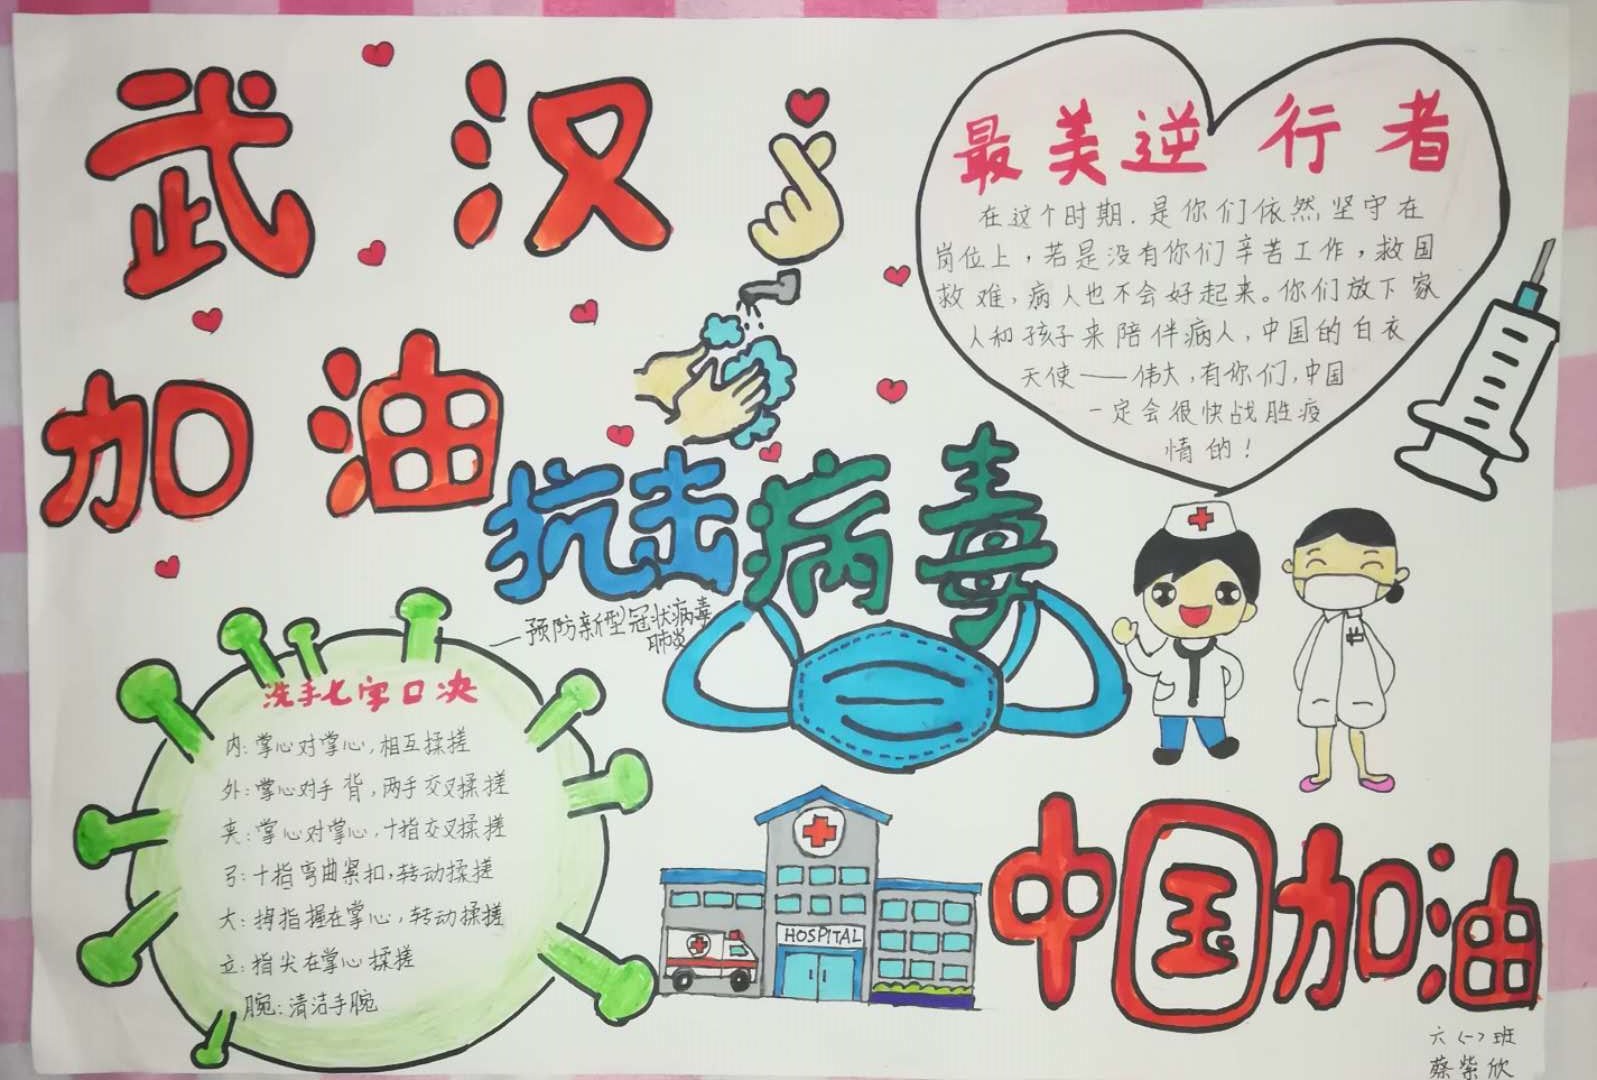 武汉
加油
抗击病毒
——预防新型冠状病毒
肺炎
最美逆行者
在这个时期.是你们依然坚守在
岗位上，若是没有你们辛苦工作，救国
救难，病人也不会好起来。你们放下家
人和孩子来陪伴病人，中国的白衣
天使——伟大，有你们，中国
一定会很快战胜疫
情的！
洗手七字口决
内：掌心对掌心，相互揉搓
外：掌心对手背，两手交叉揉搓
夹：掌心对掌心，十指交叉揉搓
弓：十指弯曲紧扣，转动揉搓
大：拇指握在掌心，转动揉搓
立：指尖在掌心揉搓
腕：清洁手腕
HOSPITAL
中国加油
六（一）班
蔡紫欣